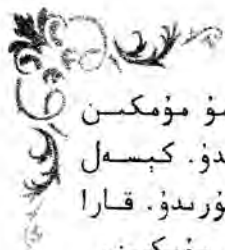 مۇ مۇمكىن
ىدۇ. كېسەل
ۈرىدۇ. قارا